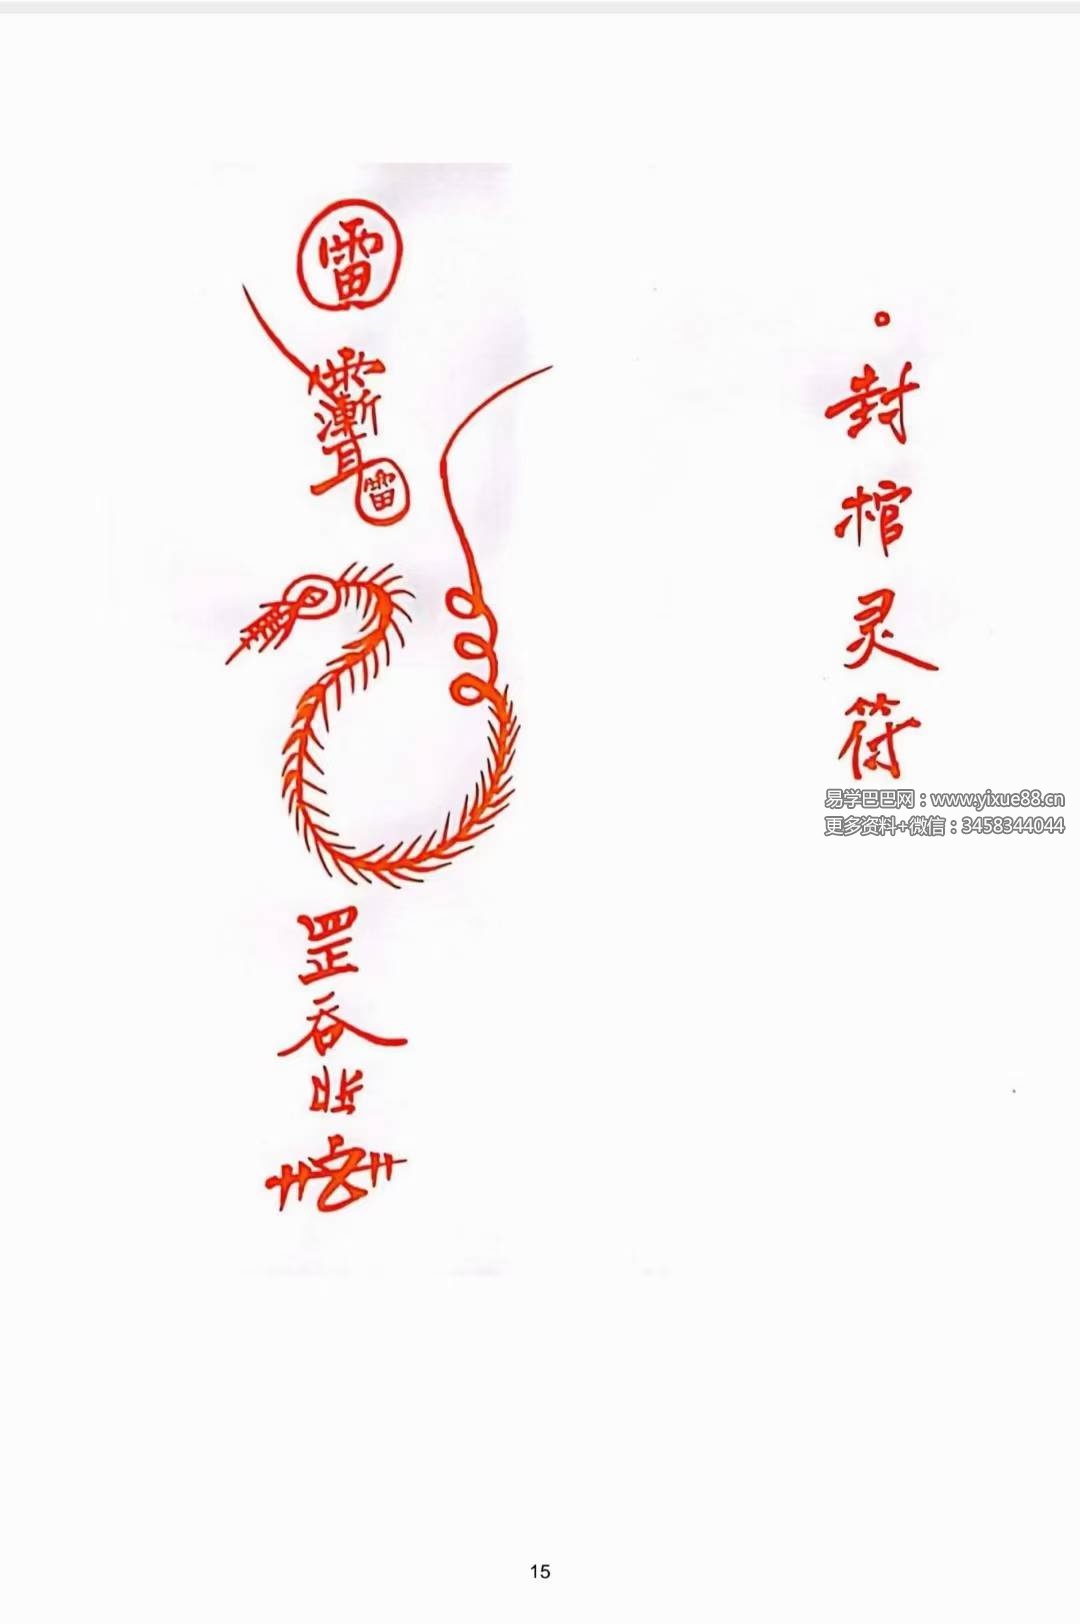 封棺灵符
雷
雷
罡
吞
易学巴巴网：www.yixue88.cn
更多资料+微信：3458344044
15